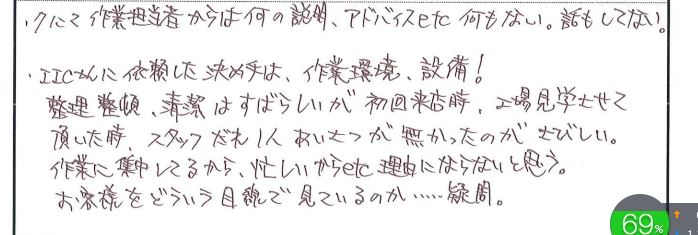 ・クにて作業担当者からは何の説明、アドバイスetc何もない。話もしてない。
・IICさんに依頼した決め手は、作業環境、設備!
整理整頓、清潔はすばらしいが初回来店時、工場見学させて
頂いた時、スタッフだれ1人あいさつが無かったのがさびしい。
作業に集中してるから、忙しいからetc理由にならないと思う。
お客様をどういう目線で見ているのか……疑問。
69%